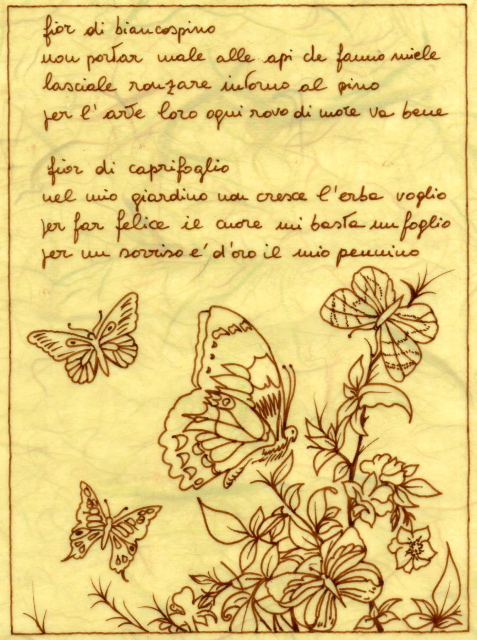 fior di biancospino
non portar male alle api che fanno miele
lasciale ronzare intorno al pino
per l'arte loro ogni rovo di more va bene
fior di caprifoglio
nel mio giardino non cresce l'erba voglio
per far felice il cuore mi basta un foglio
per un sorriso e' d'oro il mio pennino